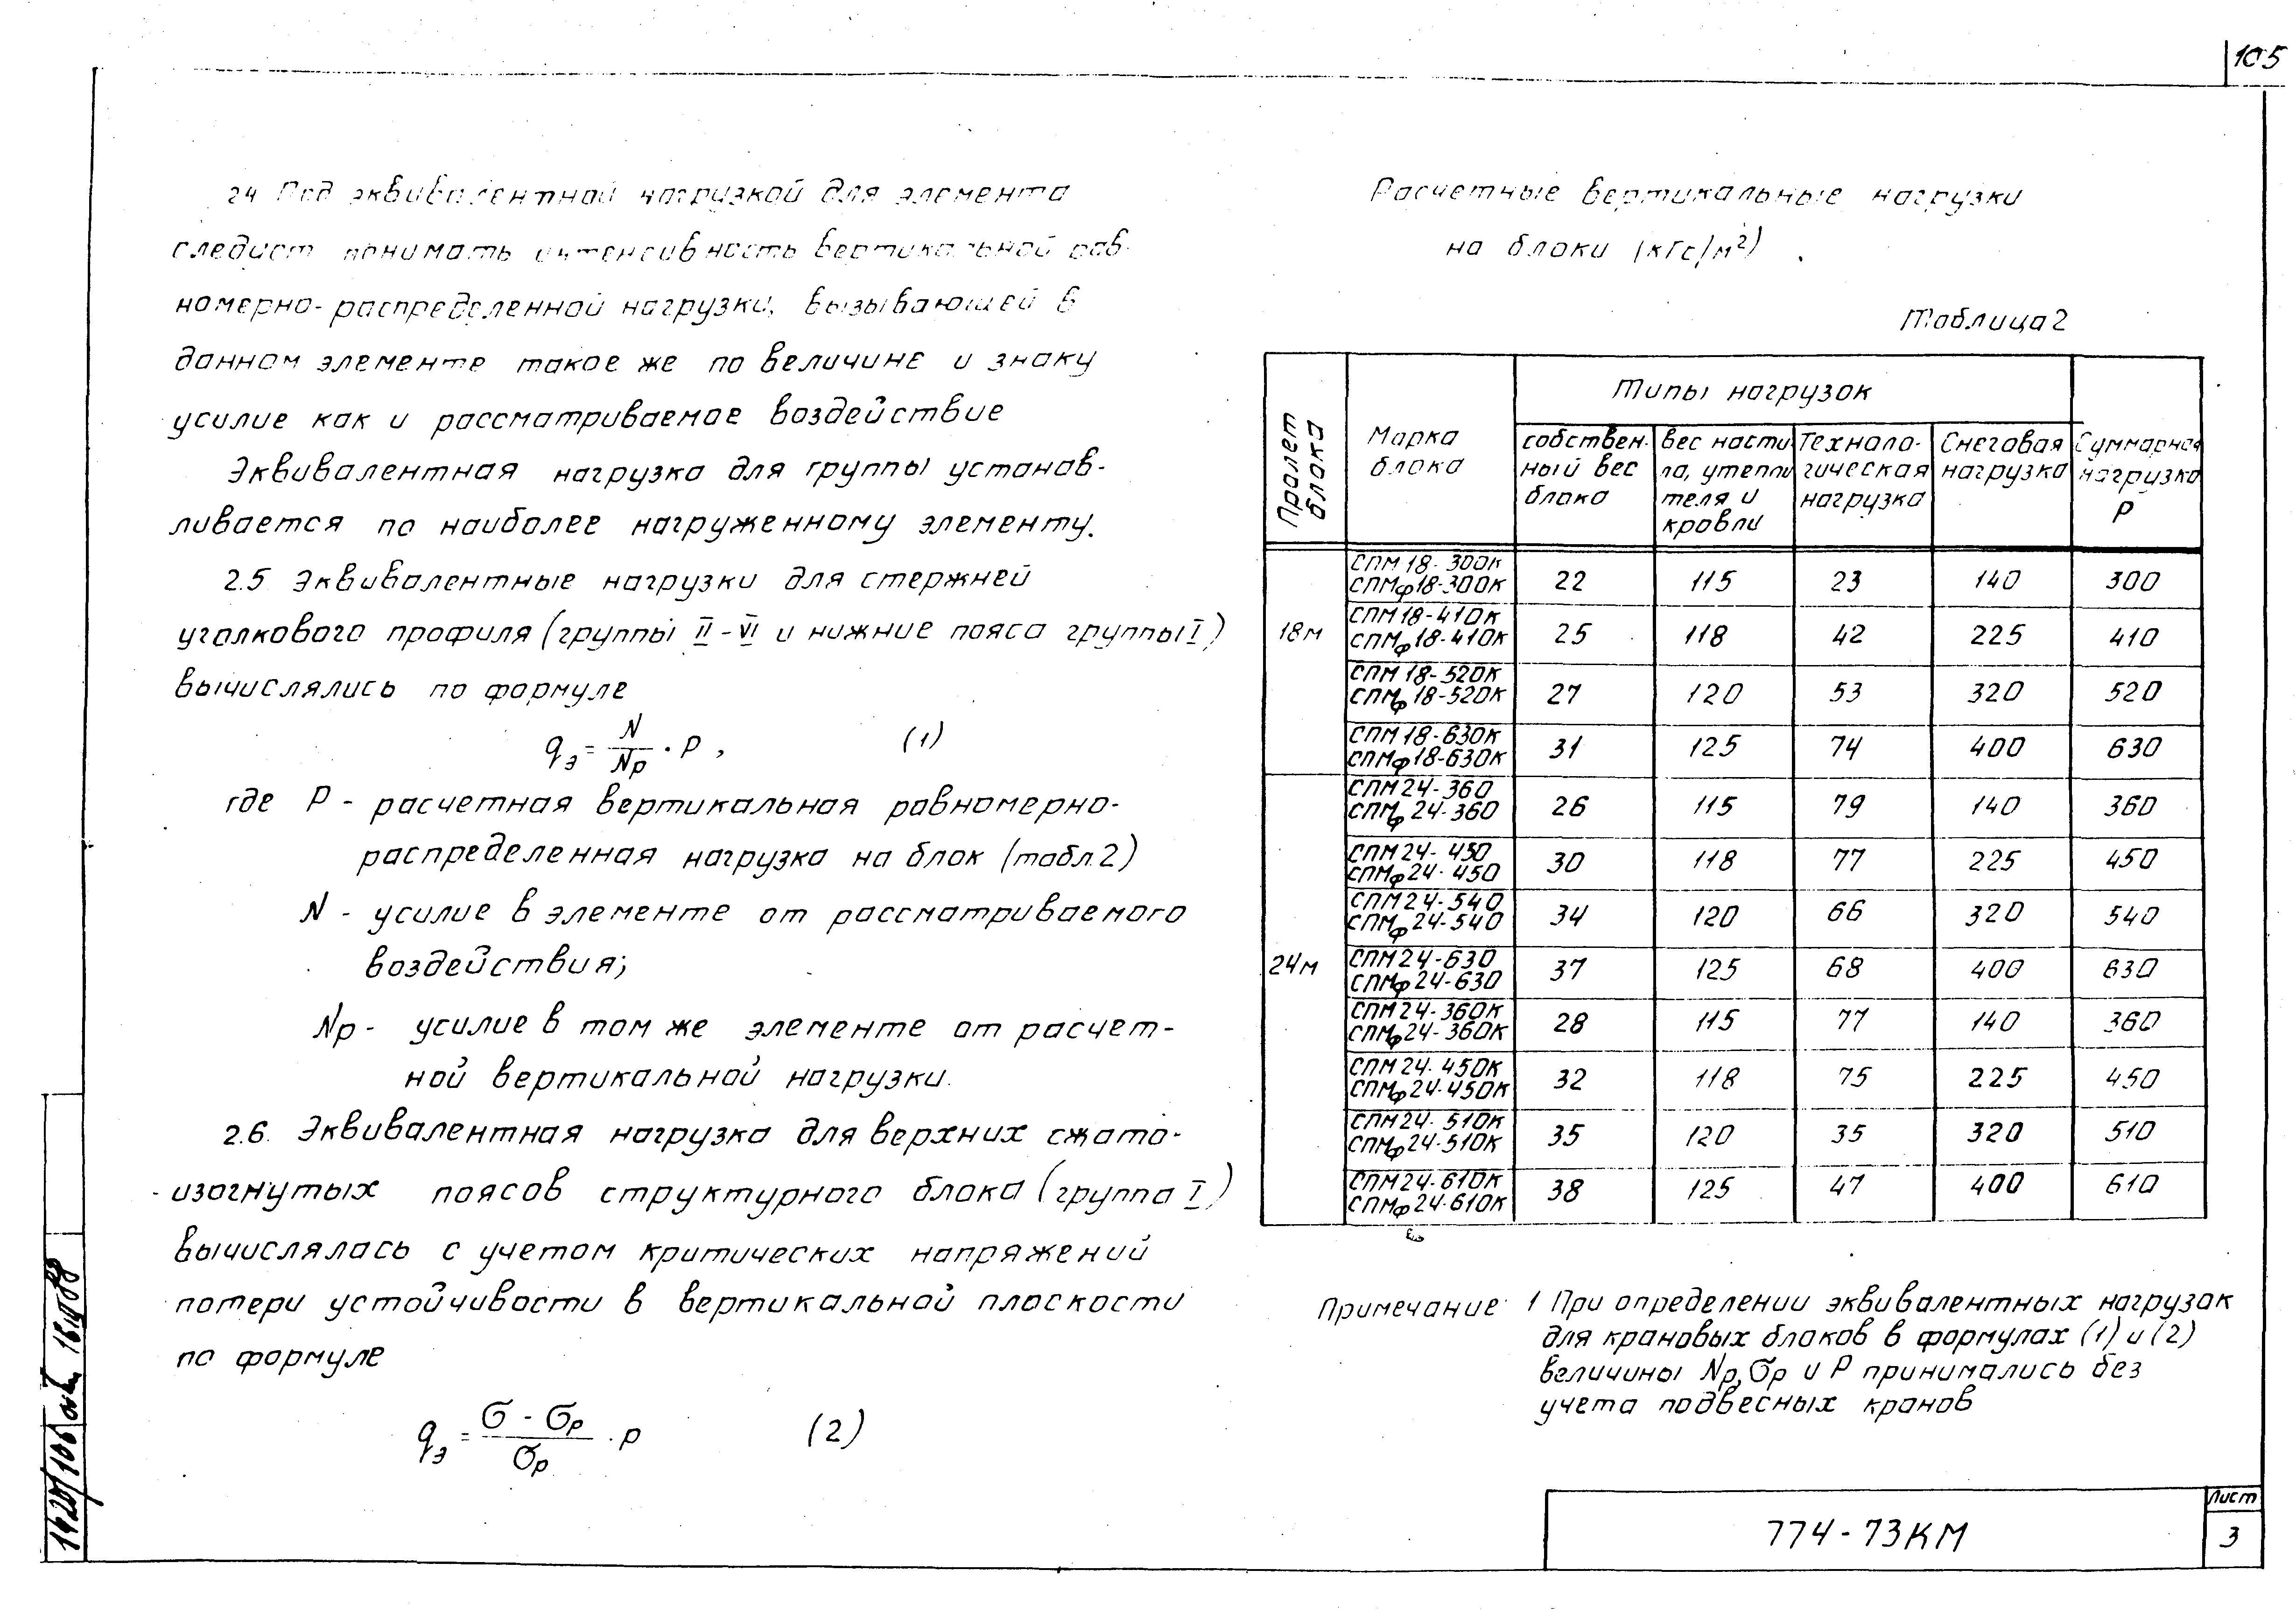 105
2.4 Под эквивалентной нагрузкой для элемента
следует понимать интенсивность вертикальной рав-
номерно-распределенной нагрузки, вызывающей в
данном элементе такое же по величине и знаку
усилие как и рассматриваемое воздействие
Эквивалентная нагрузка для группы устанав-
ливается по наиболее нагруженному элементу.
2.5 Эквивалентные нагрузки для стержней
уголкового профиля (группы II-VI и нижние пояса группы I)
вычислялись по формуле
qэ = N/Nр · P, (1)
где P - расчетная вертикальная равномерно-
распределенная нагрузка на блок (табл.2)
N - усилие в элементе от рассматриваемого
воздействия;
Nр - усилие в том же элементе от расчет-
ной вертикальной нагрузки.
2.6. Эквивалентная нагрузка для верхних сжато-
изогнутых поясов структурного блока (группа I)
вычислялась с учетом критических напряжений
потери устойчивости в вертикальной плоскости
по формуле
qэ = (σ - σр)/σр · P (2)
Расчетные вертикальные нагрузки
на блоки (кгс/м²)
Таблица 2
Пролет блока
Марка блока
Типы нагрузок
собствен-ный вес блока
вес насти ла, утепли теля и кровли
Техноло-гическая нагрузка
Снеговая нагрузка
Суммарная нагрузка P
18м
СПМ 18-300К
СПМф18-300К 22 115 23 140 300
СПМ 18-410К
СПМф18-410К 25 118 42 225 410
СПМ 18-520К
СПМф18-520К 27 120 53 320 520
СПМ 18-630К
СПМф18-630К 31 125 74 400 630
24м
СПМ24-360
СПМф24-360 26 115 79 140 360
СПМ24-450
СПМф24-450 30 118 77 225 450
СПМ24-540
СПМф24-540 34 120 66 320 540
СПМ24-630
СПМф24-630 37 125 68 400 630
СПМ24-360К
СПМф24-360К 28 115 77 140 360
СПМ24-450К
СПМф24-450К 32 118 75 225 450
СПМ24-510К
СПМф24-510К 35 120 35 320 510
СПМ24-610К
СПМф24-610К 38 125 47 400 610
Примечание: 1 При определении эквивалентных нагрузок
для крановых блоков в формулах (1) и (2)
величины Nр, σр и P принимались без
учета подвесных кранов
774-73КМ
Лист
3